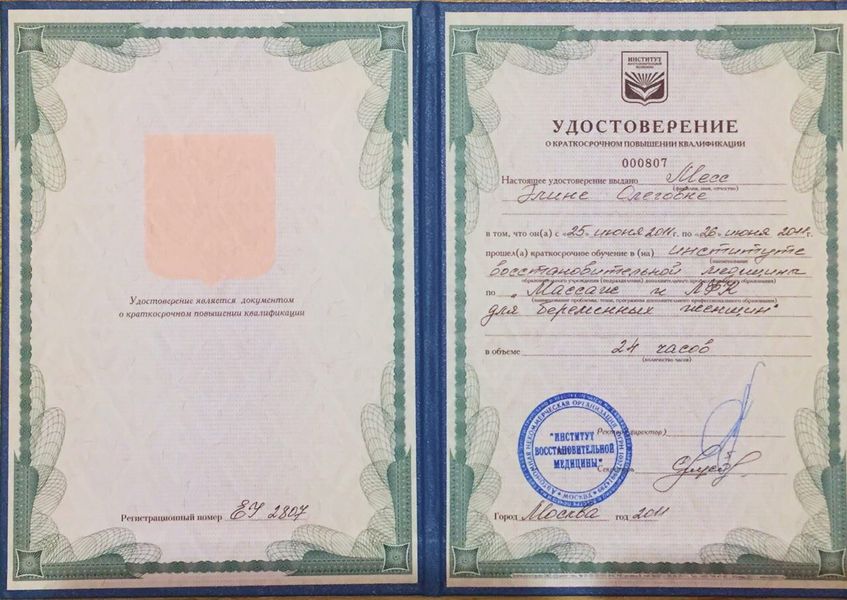 Удостоверение является документом
о краткосрочном повышении квалификации
Регистрационный номер ЕУ 2807
ИНСТИТУТ
УДОСТОВЕРЕНИЕ
О КРАТКОСРОЧНОМ ПОВЫШЕНИИ КВАЛИФИКАЦИИ
000807
Настоящее удостоверение выдано Месс
(фамилия, имя, отчество)
Элине Олеговне
в том, что он(а) с «25» июня 2011г. по «26» июня 2011г.
прошел(а) краткосрочное обучение в (на) институте
(наименование)
восстановительной медицины
образовательного учреждения (подразделения) дополнительного профессионального образования)
по „Массаж и ЛФК
(наименование проблемы, темы, программы дополнительного профессионального образования)
для беременных женщин"
в объеме 24 часов
(количество часов)
Ректор (директор)
"ИНСТИТУТ
ВОССТАНОВИТЕЛЬНОЙ
МЕДИЦИНЫ"
АВТОНОМНАЯ НЕКОММЕРЧЕСКАЯ ОРГАНИЗАЦИЯ
МОСКВА
Секретарь
Город Москва год 2011